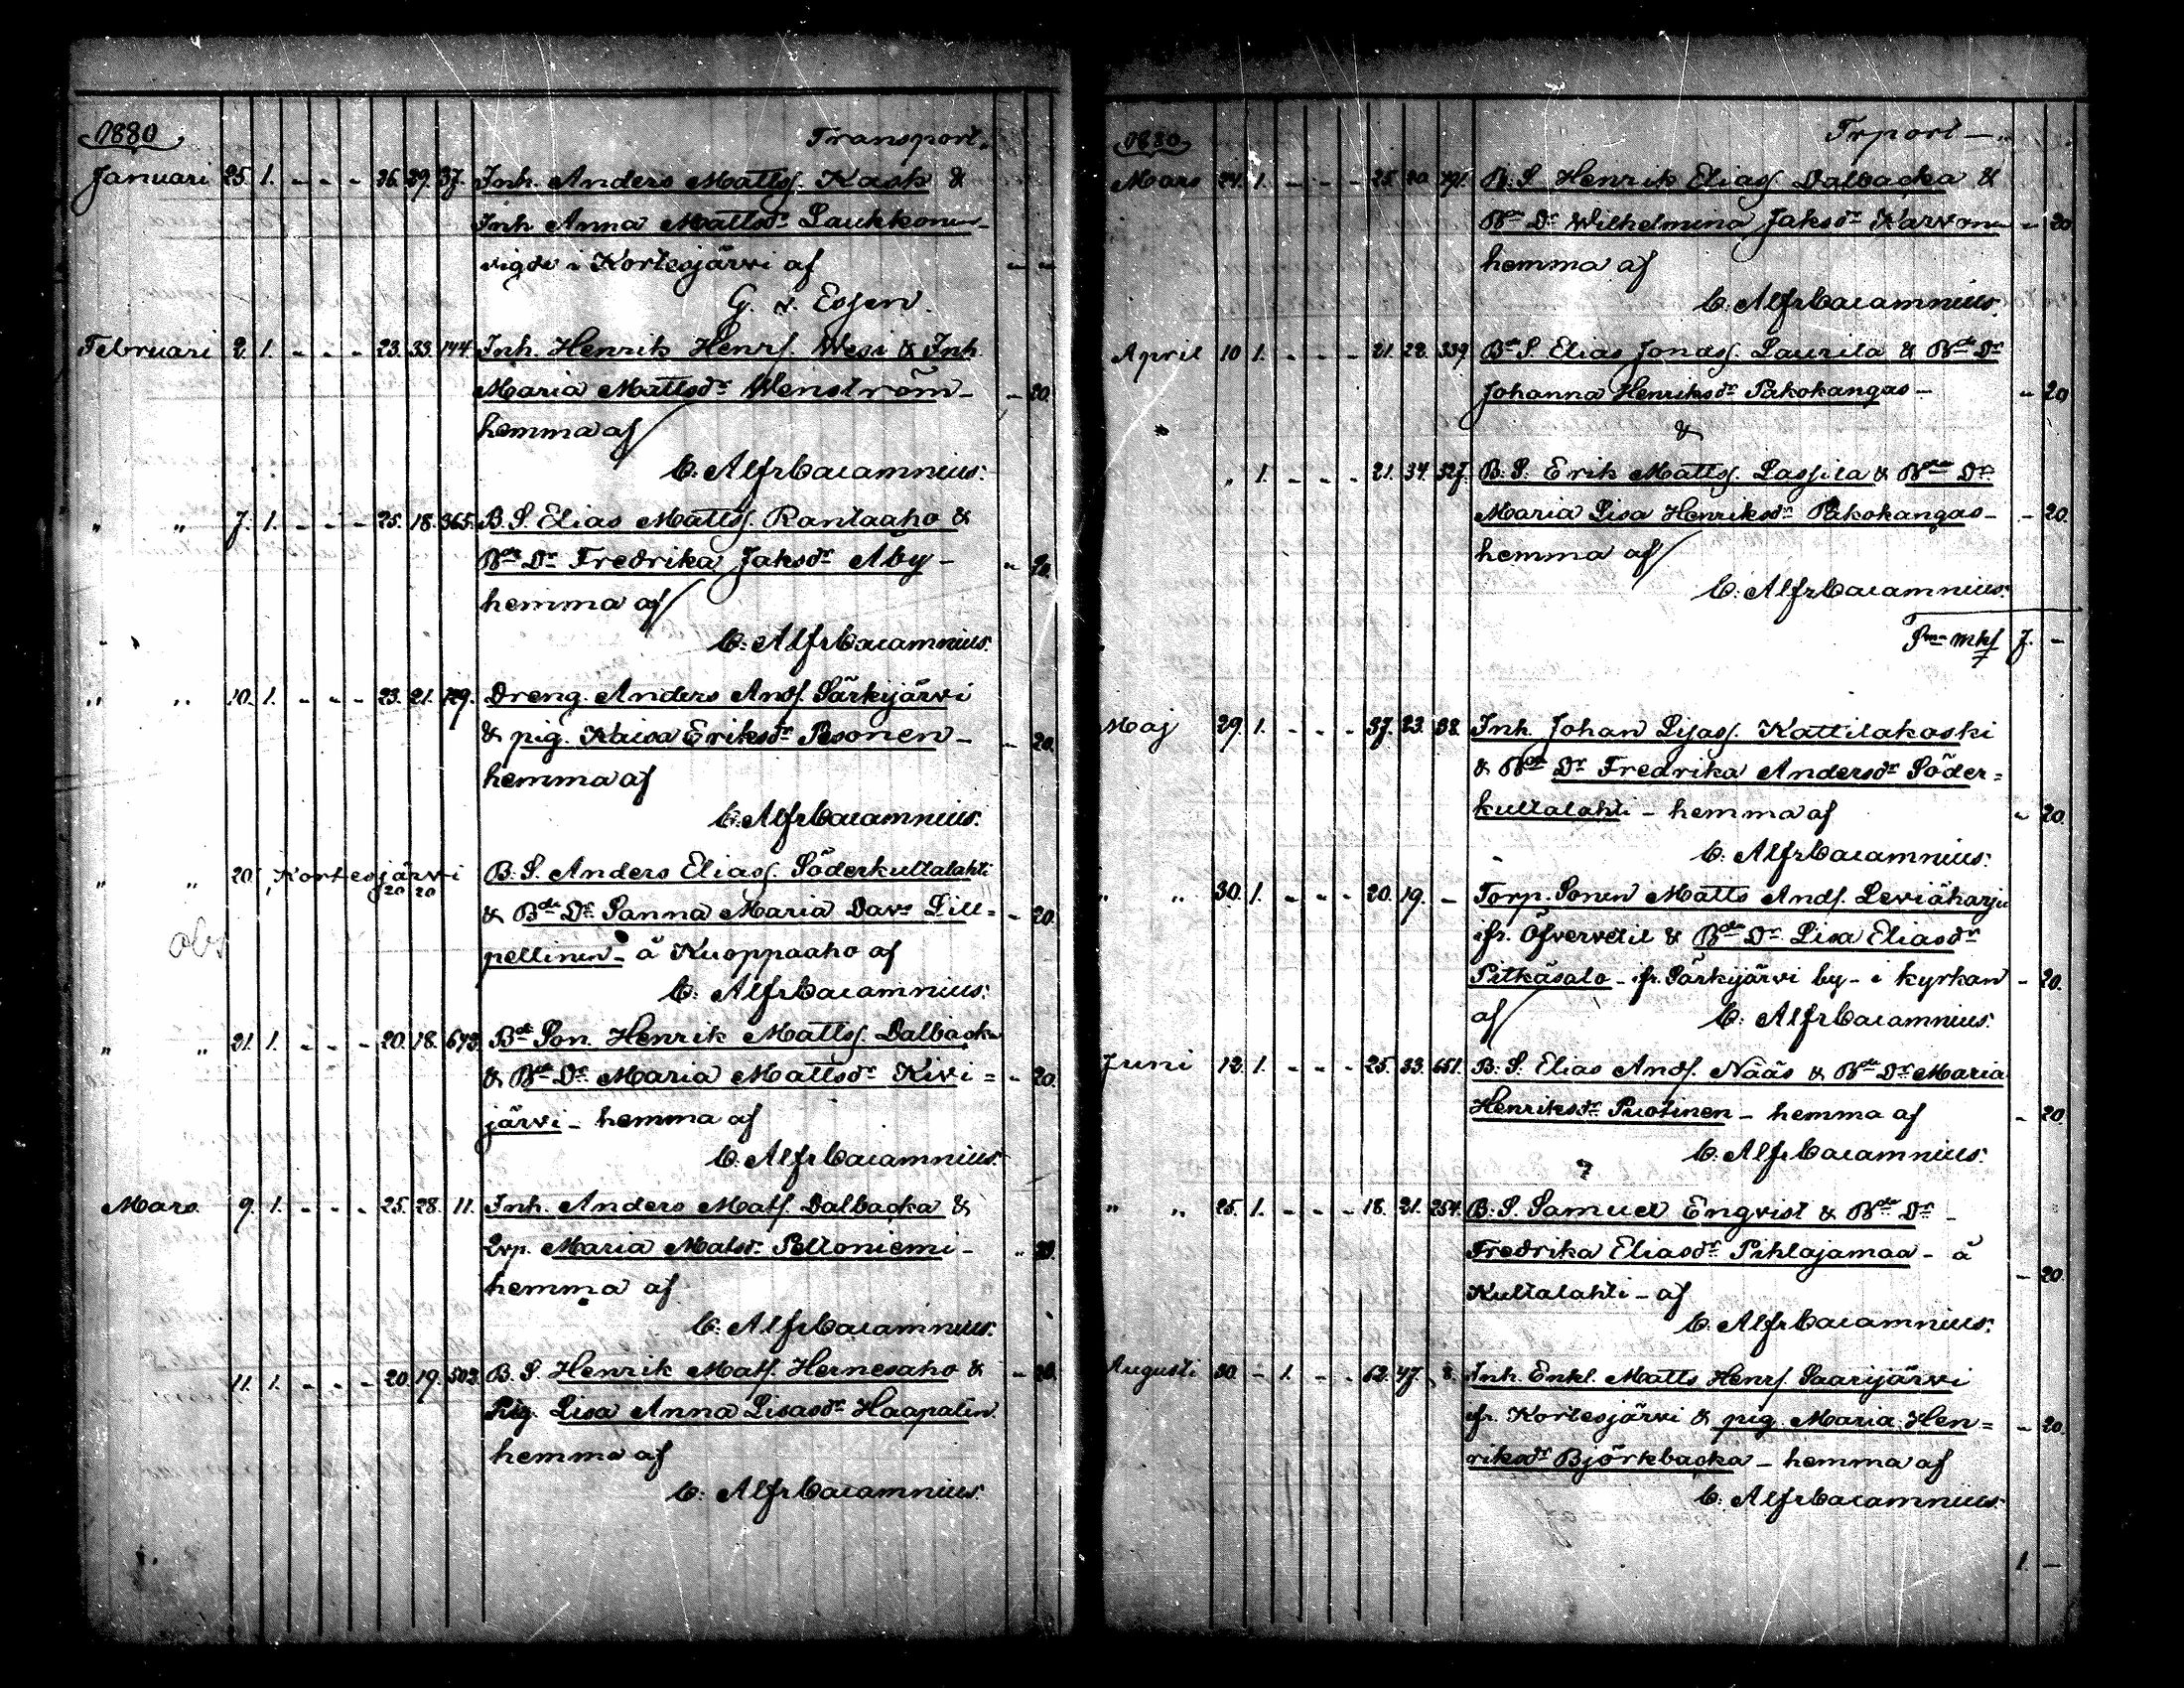 1880 Transport.
Januari 25. 1. - - - 36. 39. 37. Inh. Anders Matts. Kask &
Inh Anna Mattsdr Laukkonen -
vigde i Kortesjärvi af - -
G. v. Essen.
Februari 2. 1. - - - 23. 33. 144 Inh. Henrik Henrs. Wesi & Inh.
Maria Mattsdr Wenström - - 20.
hemma af
C. Alfr Cajamnius.
" " 7. 1. - - - 25. 18. 365. B. S. Elias Matts. Rantaaho &
Bde Dr Fredrika Jaksdr Aby - - 20.
hemma af
C. Alfr Cajamnius.
" " 10. 1. - - - 23. 21. 129. Dreng. Anders Ands. Särkijärvi
& pig. Kaisa Eriksdr Pesonen - - 20.
hemma af
C. Alfr Cajamnius.
" " 20. Kortesjärvi 20 20 B. S. Anders Elias. Söderkultalahti
& Bde Dr Sanna Maria Davs Lill= - 20.
obs pellinen - å Kuoppaaho af
C. Alfr Cajamnius.
" " 21. 1. - - - 20. 18. 673. Bde Son. Henrik Matts. Dalbacka
& Bde Dr Maria Mattsdr Kivi= - 20.
järvi - hemma af
C. Alfr Cajamnius.
Mars 9. 1. - - - 25. 28. 11. Inh. Anders Mats. Dalbacka &
Maria Matsdr Peltoniemi - " 20.
hemma af
C. Alfr Cajamnius.
11. 1. - - - 20. 19. 503. B. S. Henrik Mats. Hernesaho & - 20.
Pig. Lisa Anna Lisasdr Haapalin
hemma af
C. Alfr Cajamnius.
1880 Trport -
Mars 24. 1. - - - 25. 20. 491. B. S. Henrik Elias. Dalbacka &
Bde Dr Wilhelmina Jaksdr Karvonen - 20
hemma af
C. Alfr Cajamnius.
April 10 1. - - - 21. 22. 339. Bde S. Elias Jonas. Laurila & Bde Dr
Johanna Henriksdr Pakokangas - " 20
&
" 1. - - - 21. 34. 327. B. S. Erik Matts. Lassila & Bde Dr
Maria Lisa Henriksdr Pakokangas - - 20.
hemma af
C. Alfr Cajamnius.
Sma mkf 7. -
Maj 29. 1. - - - 37. 23. 38. Inh. Johan Lisas. Kattilakoski
& Bde Dr Fredrika Andersdr Söder=
kultalahti - hemma af - 20.
C. Alfr Cajamnius.
" " 30. 1. - - - 20. 19. - Torp. Sonen Matts Ands. Leviäharju
ifr. Öfvervetil & Bde Dr Lisa Eliasdr
Pitkäsalo - ifr. Särkijärvi by - i kyrkan - 20.
af C. Alfr Cajamnius.
Juni 12. 1. - - - 25. 33. 651. B. S. Elias Ands. Nääs & Bde Dr Maria
Henriksdr Puotinen - hemma af - 20.
C. Alfr Cajamnius.
" " 25. 1. - - - 18. 21. 254. B. S. Samuel Engvist & Bde Dr -
Fredrika Eliasdr Pihlajamaa - å - 20.
Kultalahti - af
C. Alfr Cajamnius.
Augusti 30. - 1. - - 62. 47. 8. Inh. Enkl. Matts Henrs. Saarijärvi
ifr. Kortesjärvi & pig. Maria Hen= - 20.
riksdr Björkbacka - hemma af
C. Alfr Cajamnius.
1. -